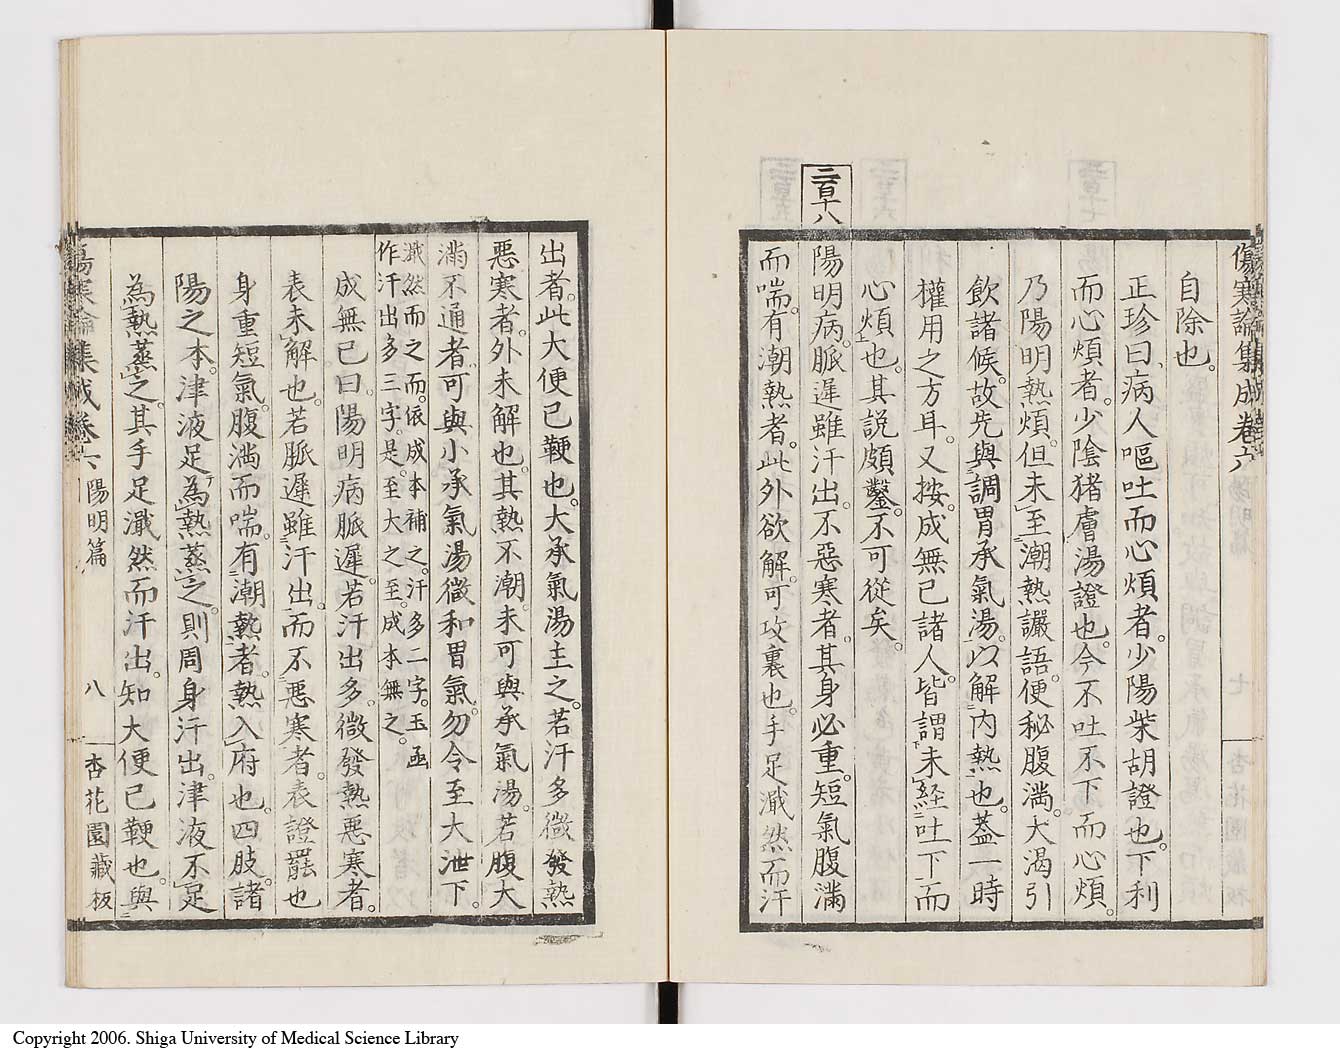 傷寒論集成卷六
自除也。
正珍曰。病人嘔吐而心煩者。少陽柴胡證也。下利
而心煩者。少陰猪膚湯證也。今不吐不下而心煩。
乃陽明熱煩。但未至潮熱讝語。便秘腹滿。大渴引
飲諸候。故先與調胃承氣湯。以解內熱也。蓋一時
權用之方耳。又按。成無已諸人。皆謂未經吐下而
心煩也。其說頗鑿。不可從矣。
二百十八
陽明病。脈遲雖汗出。不惡寒者。其身必重。短氣腹滿
而喘。有潮熱者。此外欲解。可攻裏也。手足濈然而汗
出者。此大便已鞕也。大承氣湯主之。若汗多微發熱
惡寒者。外未解也。其熱不潮。未可與承氣湯。若腹大
滿不通者。可與小承氣湯微和胃氣。勿令至大泄下。
濈然而之而。依成本補之。汗多二字。玉函
作汗出多三字。是。至大之至。成本無之。
成無已曰。陽明病脈遲。若汗出多。微發熱惡寒者。
表未解也。若脈遲雖汗出。而不惡寒者。表證罷也
身重短氣。腹滿而喘。有潮熱者。熱入府也。四肢諸
陽之本。津液足。為熱蒸之。則周身汗出。津液不足
為熱蒸之。其手足濈然而汗出。知大便已鞕也。與
傷寒論集成卷六
陽明篇
八
杏花園藏板
Copyright 2006. Shiga University of Medical Science Library